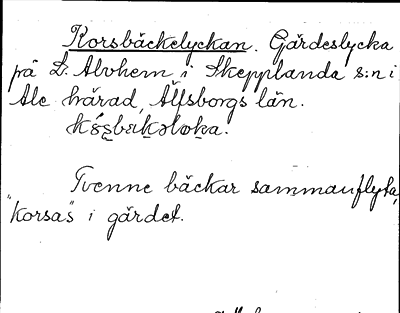 Korsbäckelyckan. Gärdeslycka
på L. Alvhem i Skepplanda s:n i
Ale härad, Älfsborgs län.
Tvenne bäckar sammanflyta,
"korsas" i gärdet.